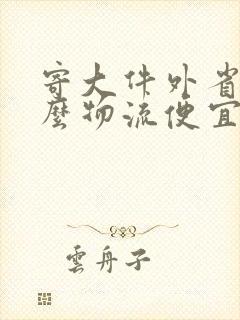 寄大件外省
麼物流便宜
雲舟子